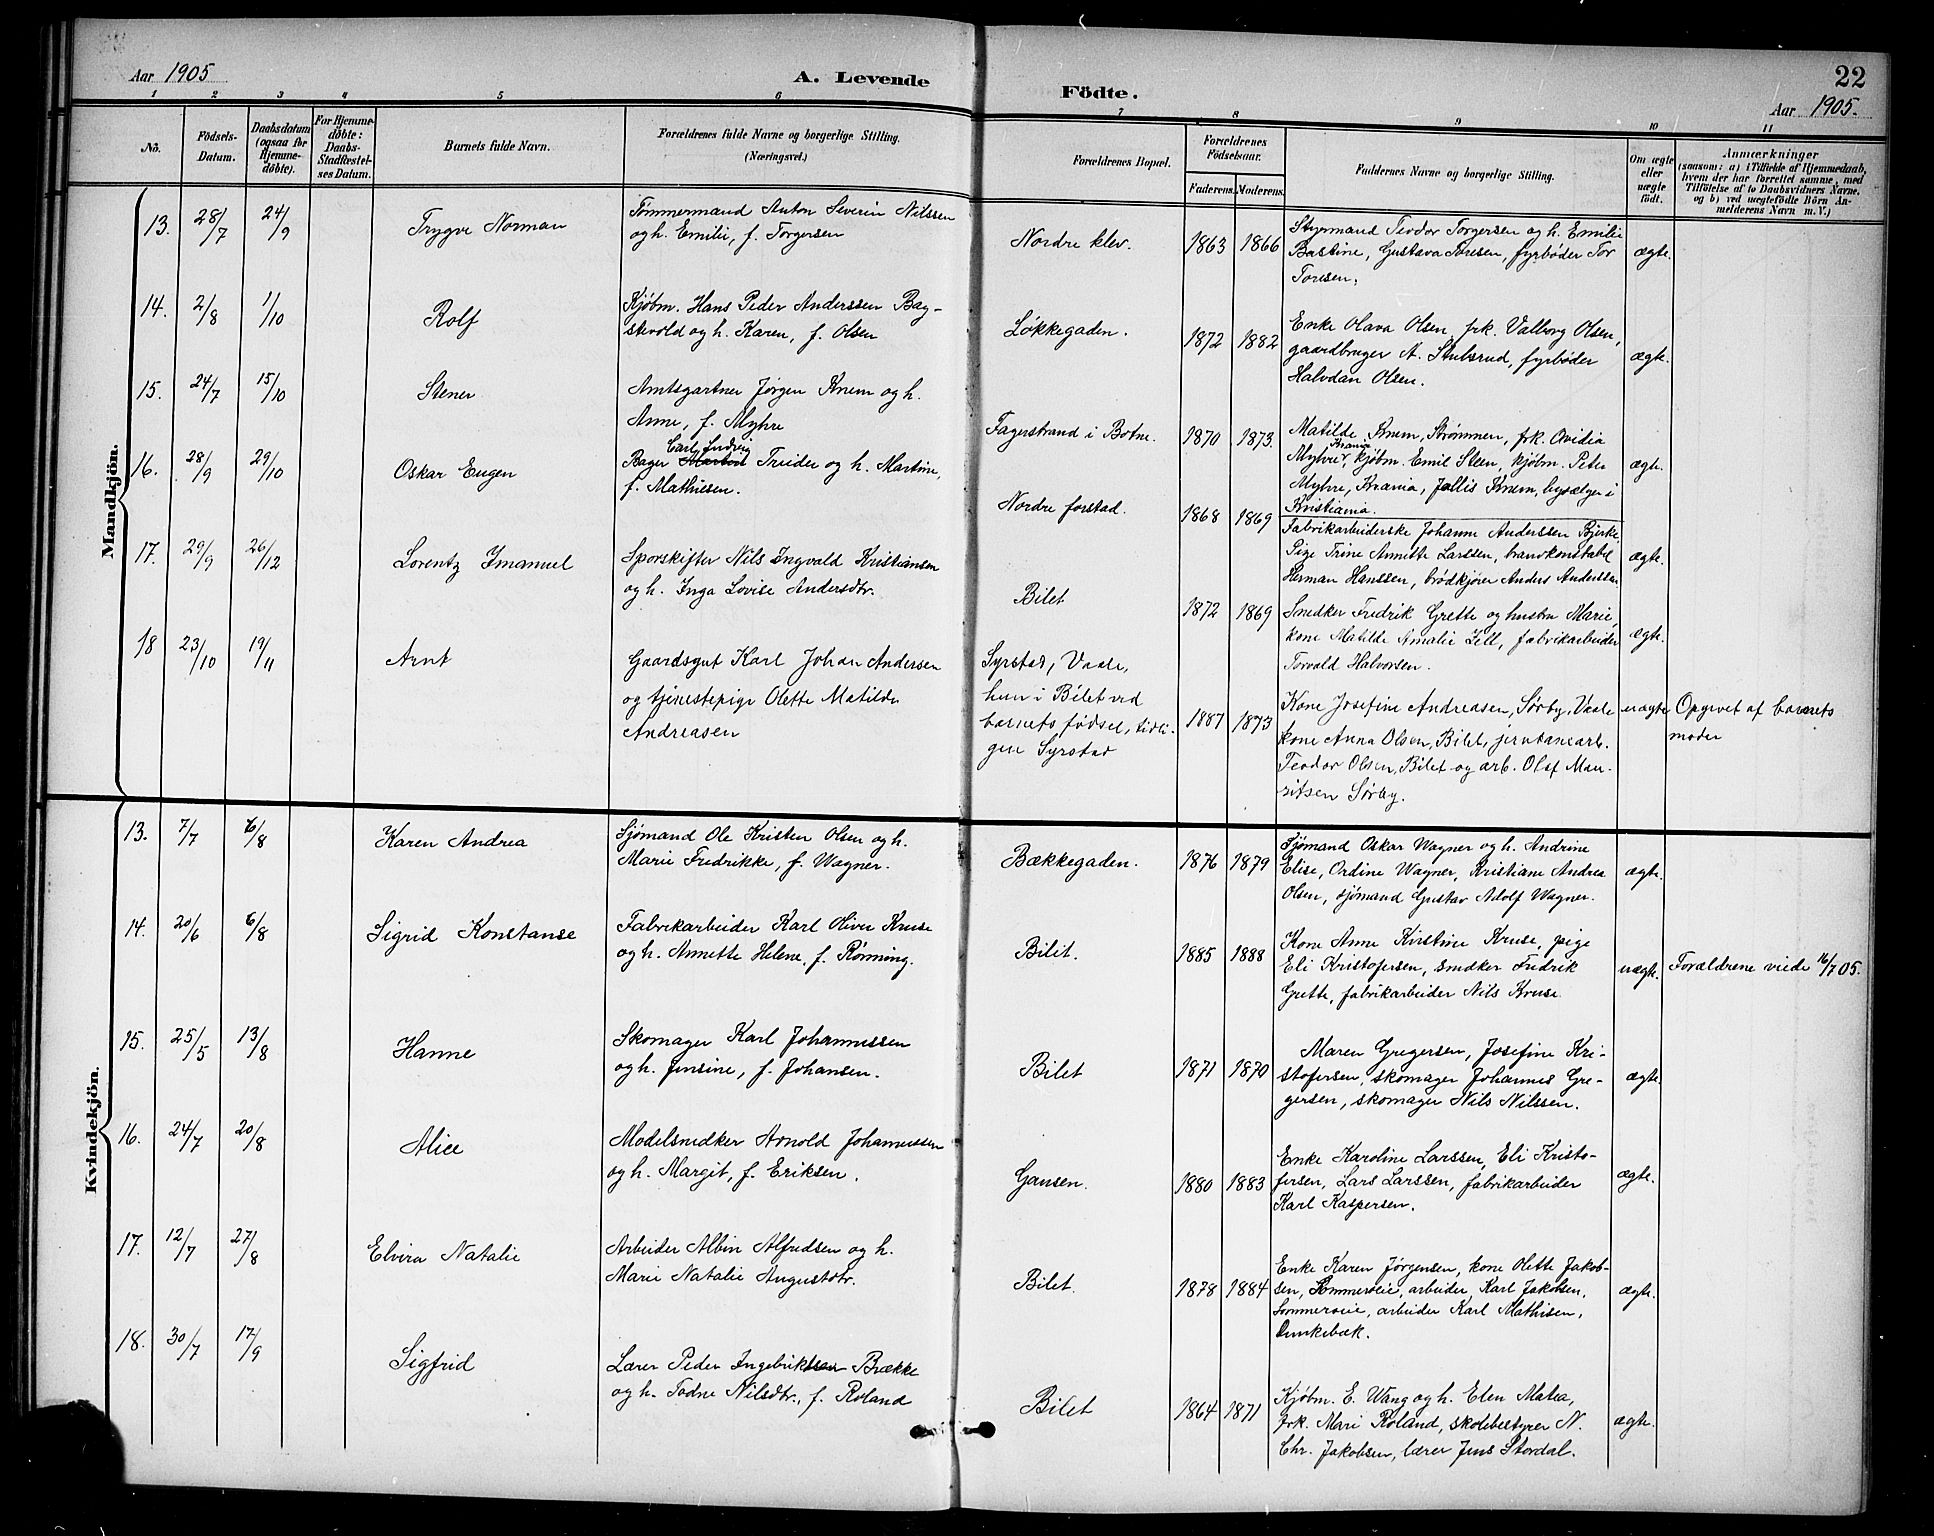 Aar 1905
A. Levende
Födte.
22
Aar 1905.
1 2 3 4 5 6 7 8 9 10 11
No.
Födsels-Datum.
Daabsdatum (ogsaa for Hjemme-döbte).
For Hjemme-döbte: Daabs-Stadfæstel-ses Datum.
Barnets fulde Navn.
Forældrenes fulde Navne og borgerlige Stilling.
(Næringsvei.)
Forældrenes Bopæl.
Forældrenes Födselsaar.
Faderens. Moderens.
Faddernes Navne og borgerlige Stilling.
Om ægte eller uægte födt.
Anmærkninger
(saasom: a) i Tilfælde af Hjemmedaab, hvem der har forrettet samme, med Tilföielse af to Daabsvidners Navne, og b) ved uægtefödte Börn An-melderens Navn m. V.)
Mandkjön.
13. 28/7 24/9 Trygve Norman
Tømmermand Anton Severin Nilssen
og h. Emilie, f. Torgersen
Nordre klev. 1863 1866
Styrmand Teodor Torgersen og h. Emilie
Bastine, Gustava Toresen, fyrbøder Tor
Toresen.
ægte.
14. 2/8 1/10 Rolf
Kjøbm. Hans Peder Anderssen Bag-
skvold og h. Karen, f. Olsen
Løkkegaden. 1872 1882
Enke Olava Olsen, frk. Valborg Olsen,
gaardbruger A. Stubsrud, fyrbøder
Halvdan Olsen.
ægte.
15. 24/7 15/10 Stener
Amtsgartner Jørgen Knem og h.
Anne, f. Myhre
Fagerstrand i Botne. 1870 1873.
Matilde Knem, Strømmen, frk. Ovidia
Myhre, Krania, kjøbm. Emil Steen, kjøbm. Peter
Myhre, Krania, Jallis Knem, bysælger i
Kristiania.
ægte.
16. 28/9 29/10 Oskar Eugen
Carl Ludvig
Bager Martin Treider og h. Martine,
f. Mathisen.
Nordre forstad. 1868 1869
Fabrikarbeiderske Johanne Anderssen Bjerke
Pige Trine Annette Larssen, brandkonstabel
Herman Hanssen, brødkjører Anders Anderssen
ægte.
17. 29/9 26/12 Lorentz Imanuel
Sporskifter Nils Ingvald Kristiansen
og h. Inga Lovise Andersdtr.
Bilet 1872 1869
Snedker Fredrik Grette og hustru Marie,
kone Matilde Amalie Lell, fabrikarbeider
Torvald Halvorsen.
ægte.
18 23/10 19/11 Arnt
Gaardsgut Karl Johan Andersen
og tjenestepige Olette Matilde
Andreasen
Syrstad, Vaale,
hun i Bilet ved
barnets fødsel, tidli-
gere Syrstad
1887 1873
Kone Josefine Andreasen, Sørby, Vaale
kone Anna Olsen, Bilet, jernbanearb.
Teodor Olsen, Bilet og arb. Olaf Mau-
ritsen Sørby.
uægte
Opgivet af barnets
moder
Kvindekjön.
13. 7/7 6/8 Karen Andrea
Sjømand Ole Kristen Olsen og h.
Marie Fredrikke, f. Wagner.
Bækkegaden. 1876 1879
Sjømand Oskar Wagner og h. Andrine
Elise, Ordine Wagner, Kristiane Andrea
Olsen, sjømand Gustav Adolf Wagner.
ægte.
14. 20/6 6/8 Sigrid Konstanse
Fabrikarbeider Karl Oliver Kruse
og h. Annette Helene, f. Rønning.
Bilet. 1885 1888
Kone Anne Kirstine Kruse, pige
Eli Kristofersen, snedker Fredrik
Grette, fabrikarbeider Nils Kruse.
uægte.
Forældrene viede 16/7 05.
15. 25/5 13/8 Hanne
Skomager Karl Johannessen
og h. Jensine, f. Johansen.
Bilet 1871 1870
Maren Gregersen, Josefine Kri-
stofersen, skomager Johannes Gre-
gersen, skomager Nils Nilssen.
ægte.
16. 24/7 20/8 Alice
Modelsnedker Arnold Johannessen
og h. Margit, f. Eriksen.
Gansen. 1880 1883
Enke Karoline Larssen, Eli Kristo-
fersen, Lars Larssen, fabrikarbeider
Karl Kaspersen.
ægte.
17. 12/7 27/8 Elvira Natalie
Arbeider Albin Alfredsen og h.
Marie Natalie Augustdtr.
Bilet. 1878 1884
Enke Karen Jørgensen, kone Olette Jakob-
sen, Sommerveie, arbeider Karl Jakobsen,
Sommerveie, arbeider Karl Mathisen,
Dunkebæk.
ægte.
18. 30/7 17/9 Sigfrid
Lærer Peder Ingebriktsen Brække
og h. Todne Nilsdtr., f. Roland
Bilet 1864 1871
Kjøbm. E. Wang og h. Elen Matea,
frk. Mari Roland, skolebestyrer N.
Chr. Jakobsen, lærer Jens Stordal.
ægte.